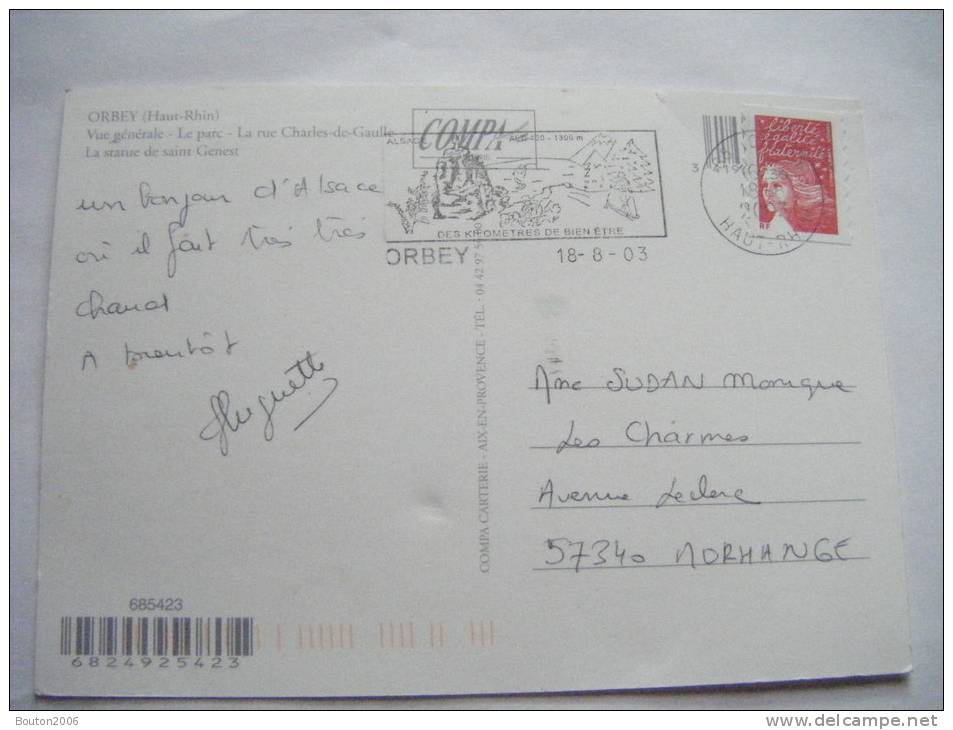 ORBEY (Haut-Rhin)
Vue générale - Le parc - La rue Charles-de-Gaulle
La statue de saint Genest
un bonjour d'Alsace
où il fait très très
chaud
A bientôt
Huguette
COMPA
ALSACE
ALT. 400 - 1300 m
DES KILOMETRES DE BIEN ÊTRE
ORBEY 18-8-03
Liberté
égalité
fraternité
RF
HAUT-RH
COMPA CARTERIE - AIX-EN-PROVENCE - TÉL. : 04 42 97
Mme SUDAN Monique
Les Charmes
Avenue Leclerc
57340 MORHANGE
685423
6824925423
Bouton2006
delcampe.net